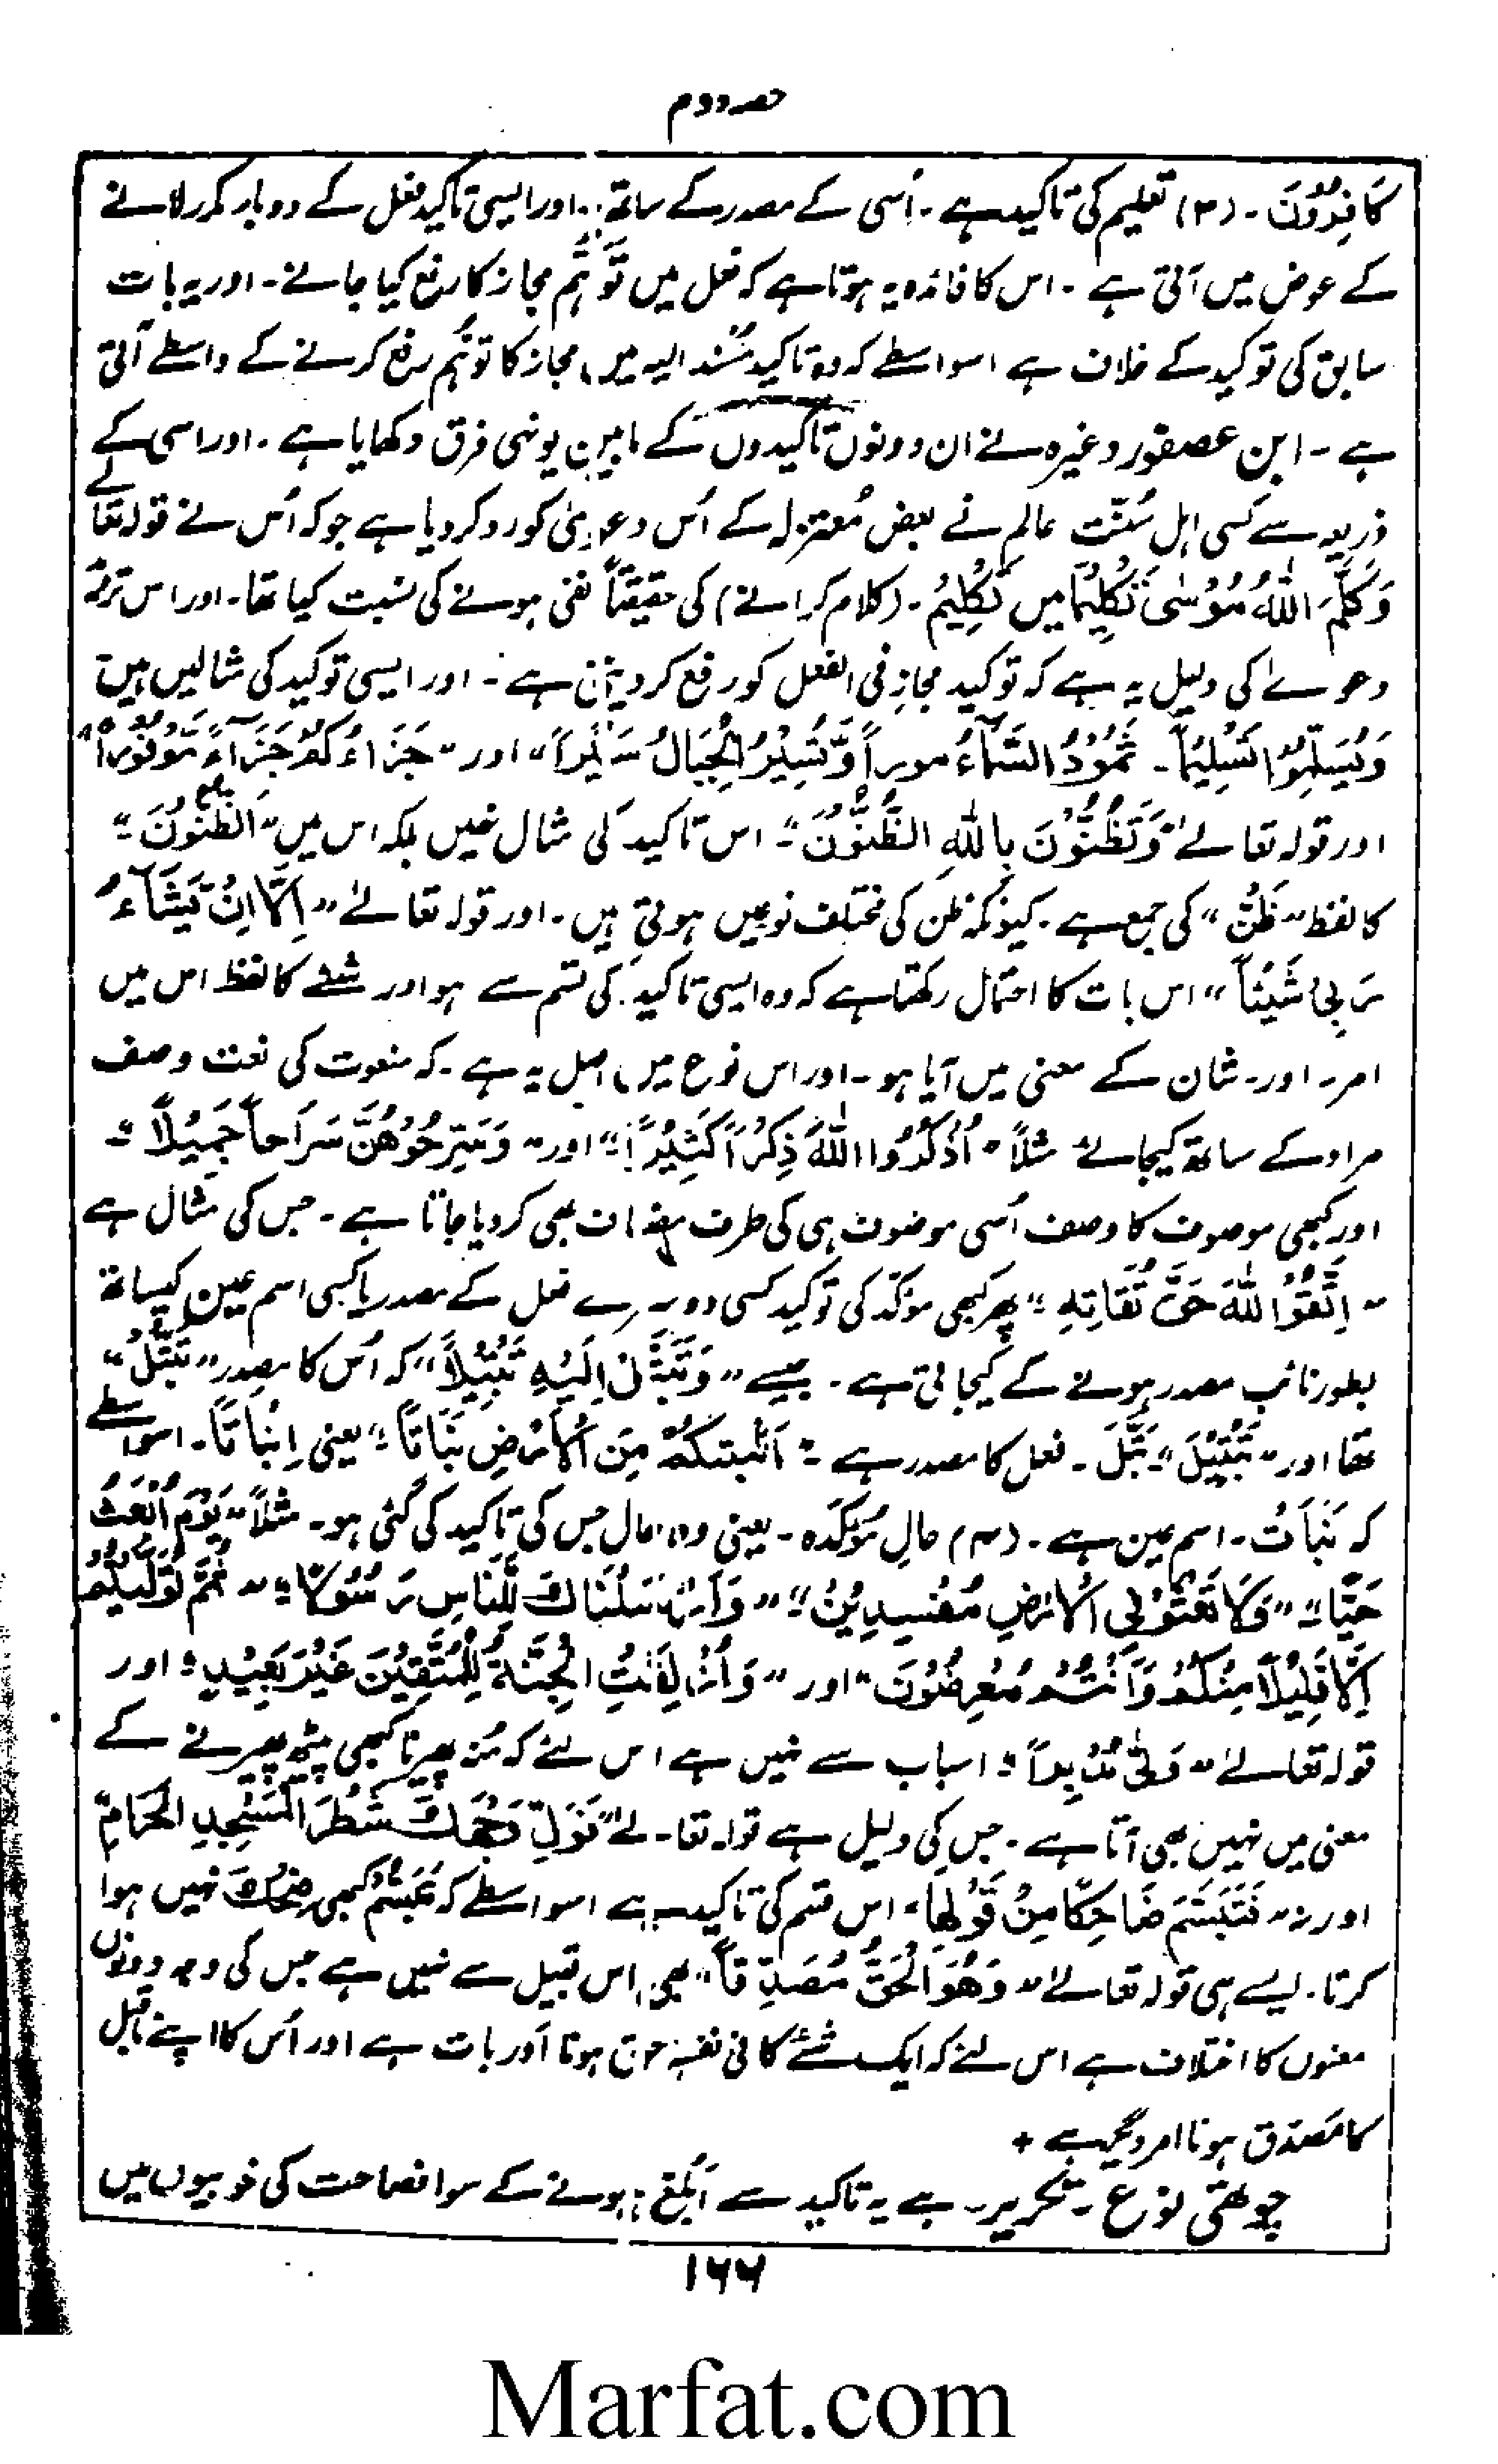 حصہ دوم
كَافِرُوْنَ - (٣) تعلیم کی تاکید ہے - اُسی کے مصدر کے ساتھ - اور ایسی تاکید فعل کے دوبار مکرر لانے
کے عوض میں آتی ہے - اس کا فائدہ یہ ہوتا ہے کہ فعل میں تَوَہُّم مجاز کا رفع کیا جائے - اور یہ بات
سابق کی توکید کے خلاف ہے اسواسطے کہ وہ تاکید مُسْند الیہ میں مجاز کا توہُّم رفع کرنے کے واسطے آتی
ہے - ابن عصفور وغیرہ نے ان دونوں تاکیدوں کے مابین یونہی فرق دکھایا ہے - اور اسی کے
ذریعہ سے کسی اہل سُنّت عالم نے بعض مُعتزلہ کے اُس دعویٰ کو رد کر دیا ہے جو کہ اُس نے قولہ تعالے
وَكَلَّمَ اللّٰهُ مُوْسٰى تَكْلِيْمًا میں تَكْلِيْمُ - (کلام کرانے) کی حقیقتاً نفی ہونے کی نسبت کیا تھا - اور اس تردید
دعوے کی دلیل یہ ہے کہ توکید مجاز فی الفعل کو رفع کر دیتی ہے - اور ایسی توکید کی مثالیں ہیں
وَيُسَلِّمُوْا تَسْلِيْمًا - تَمُوْرُ السَّمَآءُ موراً وَّتَسِيْرُ الْجِبَالُ سَيْراً" اور "جَزَاءُكُمْ جَزَآءً مَّوْفُوْراً"
اور قولہ تعالے "وَتَظُنُّوْنَ بِاللّٰهِ الظُّنُوْنَ" - اس تاکید کی مثال نہیں بلکہ اس میں "الظُّنُوْنَ"
کا لفظ "ظَنُّ" کی جمع ہے - کیونکہ ظن کی مختلف نوعیں ہوتی ہیں - اور قولہ تعالےٰ "اِلَّا اَنْ يَّشَآءَ
رَبِّیْ شَيْئاً" اس بات کا احتمال رکھتا ہے کہ وہ ایسی تاکید کی قسم سے ہو اور شئے کا لفظ اس میں
امر - اور - شان کے معنی میں آیا ہو - اور اس نوع میں اصل یہ ہے - کہ منعوت کی نعت وصف
مراد کے ساتھ کیجائے مثلاً "اُذْكُرُوا اللّٰهَ ذِكْرًا كَثِيْرًا" اور "وَسَرِّحُوْهُنَّ سَرَاحاً جَمِيْلًا"
اور کبھی موصوف کا وصف اُسی موصوف ہی کی طرف مضاف بھی کر دیا جاتا ہے - جس کی مثال ہے
"اِتَّقُوا اللّٰهَ حَقَّ تُقَاتِهٖ" پھر کبھی مؤکّد کی توکید کسی دوسرے فعل کے مصدر یا کسی اسم عین کیساتھ
بطور نائب مصدر ہونے کے کیجاتی ہے - جیسے "وَتَبَتَّلْ اِلَيْهِ تَبْتِيْلًا" کہ اُس کا مصدر "تَبَتُّلْ"
تھا اور "تَبْتِيْلَ" - بَتَّلَ - فعل کا مصدر ہے - "اَنْبَتَكُمْ مِنَ الْاَرْضِ نَبَاتًا" یعنی اِنْبَاتًا - اسواسطے
کہ نَبَاتُ - اسم عین ہے - (٤) حالِ مُؤکَّدہ - یعنی وہ حال جس کی تاکید کی گئی ہو - مثلاً "يَوْمَ اُبْعَثُ
حَيًّا" - "وَلَا تَعْثَوْا فِی الْاَرْضِ مُفْسِدِيْنَ" "وَاَرْسَلْنَاكَ لِلنَّاسِ رَسُوْلًا" "ثُمَّ تَوَلَّيْتُمْ
اِلَّا قَلِيْلًا مِنْكُمْ وَاَنْتُمْ مُعْرِضُوْنَ" اور "وَاُزْلِفَتِ الْجَنَّةُ لِلْمُتَّقِيْنَ غَيْرَ بَعِيْدٍ" اور
قولہ تعالےٰ "وَلّٰى مُدْبِراً" اسباب سے نہیں ہے اس لئے کہ مُنہ پھیرنا کبھی پیٹھ پھیرنے کے
معنی میں نہیں بھی آتا ہے - جس کی دلیل ہے قولہ تعالےٰ "فَوَلِّ وَجْهَكَ شَطْرَ الْمَسْجِدِ الْحَرَامِ"
اور نہ "فَتَبَسَّمَ ضَاحِكًا مِنْ قَوْلِهَا" اس قسم کی تاکید ہے اسواسطے کہ تَبَسُّمْ کبھی ضِحْكَ نہیں ہوا
کرتا - ایسے ہی قولہ تعالےٰ "وَهُوَ الْحَقُّ مُصَدِّقاً" بھی اس قبیل سے نہیں ہے جس کی وجہ دونوں
معنوں کا اختلاف ہے اس لئے کہ ایک شئے کا فی نفسہٖ حق ہونا اَور بات ہے اور اُس کا اپنے ماقبل
کا مُصَدِّق ہونا امر دیگر ہے +
چوتھی نوع - تکریر - ہے یہ تاکید سے اَبْلَغ ہونے کے سوا فصاحت کی خوبیوں میں
١٦٦
Marfat.com